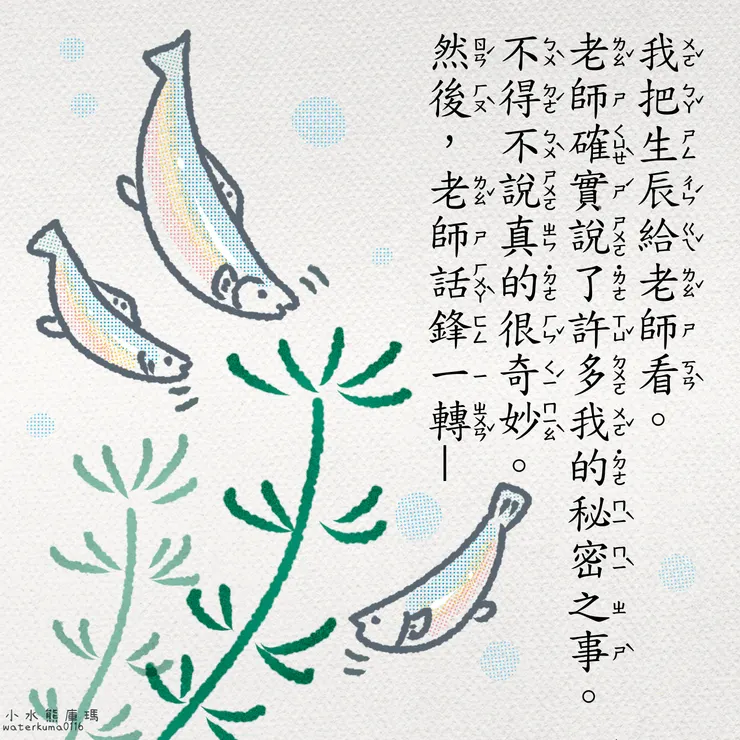 我把生辰給老師看。
老師確實說了許多我的秘密之事。
不得不說真的很奇妙。
然後，老師話鋒一轉—
小水熊庫瑪
waterkuma0116